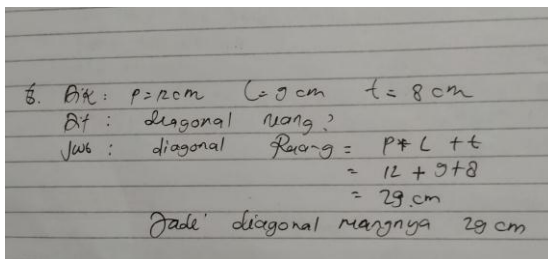 6. Dik : P = 12 cm L = 9 cm t = 8 cm
Dit : diagonal ruang?
Jwb : diagonal Ruang = P + L + t
= 12 + 9 + 8
= 29 cm
Jadi diagonal ruangnya 29 cm